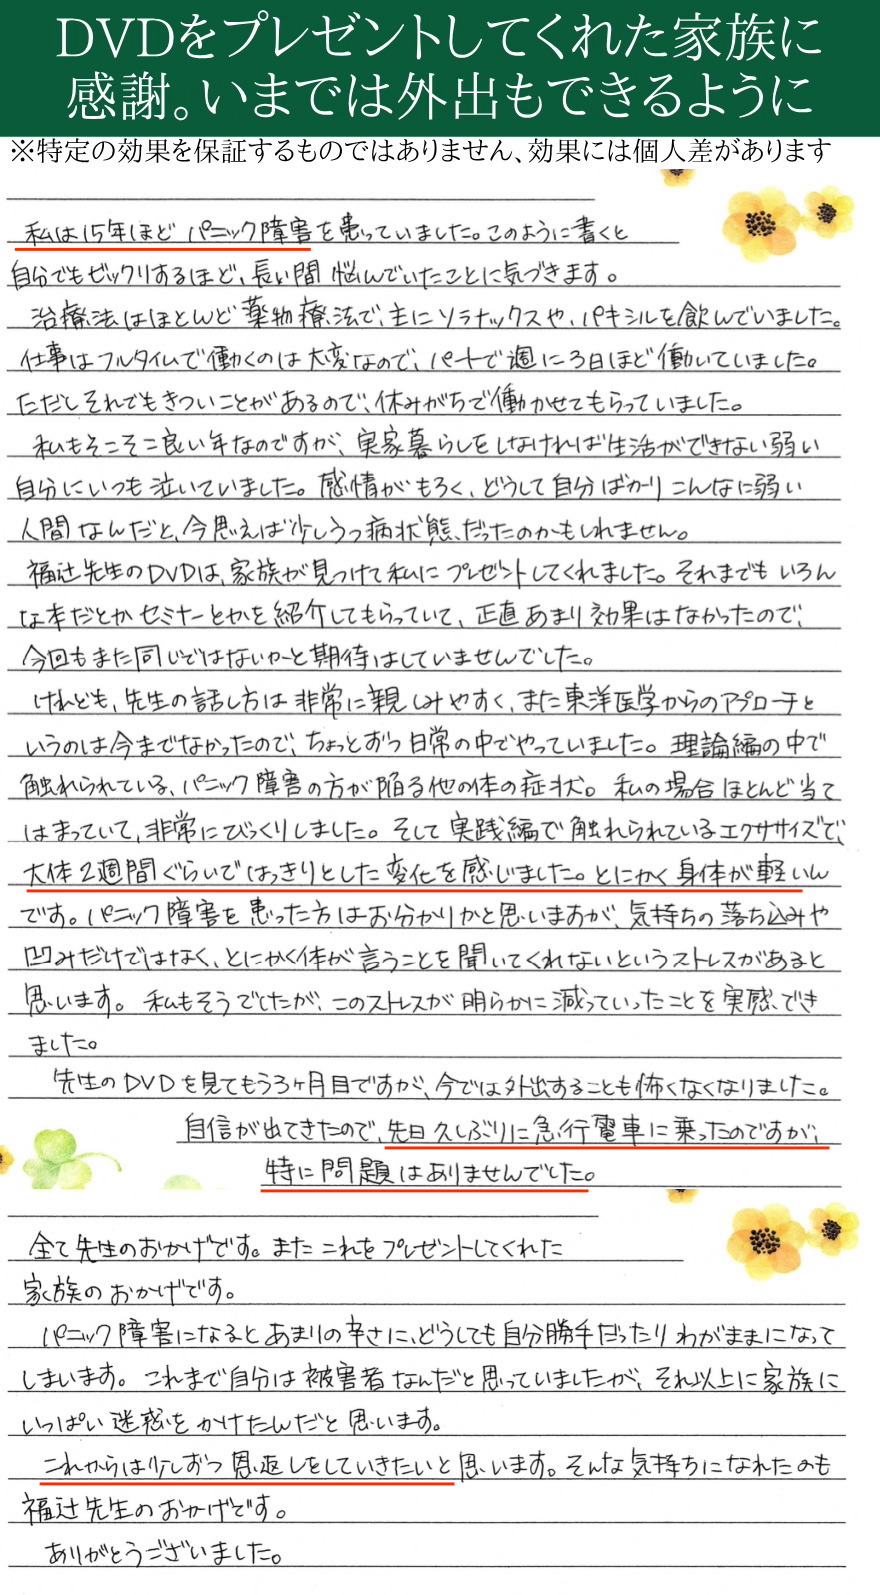 DVDをプレゼントしてくれた家族に
感謝。いまでは外出もできるように
※特定の効果を保証するものではありません、効果には個人差があります
私は15年ほど パニック障害を患っていました。このように書くと
自分でもビックリするほど、長い間 悩んでいたことに気づきます。
治療法はほとんど薬物療法で、主にソラナックスや、パキシルを飲んでいました。
仕事はフルタイムで働くのは大変なので、パートで週に3日ほど働いていました。
ただしそれでもきついことがあるので、休みがちで働かせてもらっていました。
私もそこそこ良い年なのですが、実家暮らしをしなければ生活ができない弱い
自分にいつも泣いていました。感情がもろく、どうして自分ばかりこんなに弱い
人間なんだと、今思えば少しうつ病状態だったのかもしれません。
福辻先生のDVDは、家族が見つけて私にプレゼントしてくれました。それまでもいろん
な本だとかセミナーとかを紹介してもらっていて、正直あまり効果はなかったので、
今回もまた同じではないかーと期待はしていませんでした。
けれども、先生の話し方は非常に親しみやすく、また東洋医学からのアプローチと
いうのは今までなかったので、ちょっとずつ日常の中でやっていました。理論編の中で
触れられている、パニック障害の方が陥る他の体の症状。私の場合ほとんど当て
はまっていて、非常にびっくりしました。そして実践編で触れられているエクササイズで、
大体2週間ぐらいではっきりとした変化を感じました。とにかく身体が軽いん
です。パニック障害を患った方はお分かりかと思いますが、気持ちの落ち込みや
凹みだけではなく、とにかく体が言うことを聞いてくれないというストレスがあると
思います。私もそうでしたが、このストレスが明らかに減っていったことを実感でき
ました。
先生のDVDを見てもう3ヶ月目ですが、今では外出することも怖くなくなりました。
自信が出てきたので、先日久しぶりに急行電車に乗ったのですが、
特に問題はありませんでした。
全て先生のおかげです。またこれをプレゼントしてくれた
家族のおかげです。
パニック障害になるとあまりの辛さに、どうしても自分勝手だったりわがままになって
しまいます。これまで自分は被害者なんだと思っていましたが、それ以上に家族に
いっぱい迷惑をかけたんだと思います。
これからは少しずつ恩返しをしていきたいと思います。そんな気持ちになれたのも
福辻先生のおかげです。
ありがとうございました。